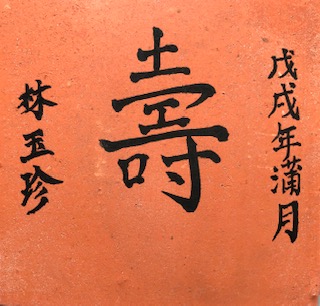 戊戌年蒲月
壽
林玉珍